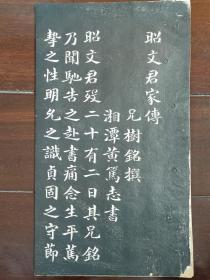 昭文君家傳
兄樹銘撰
湘潭黃篤志書
昭文君歿二十有二日其兄銘
乃聞馳告之赴書痛念生平篤
摯之性明允之識貞固之守節